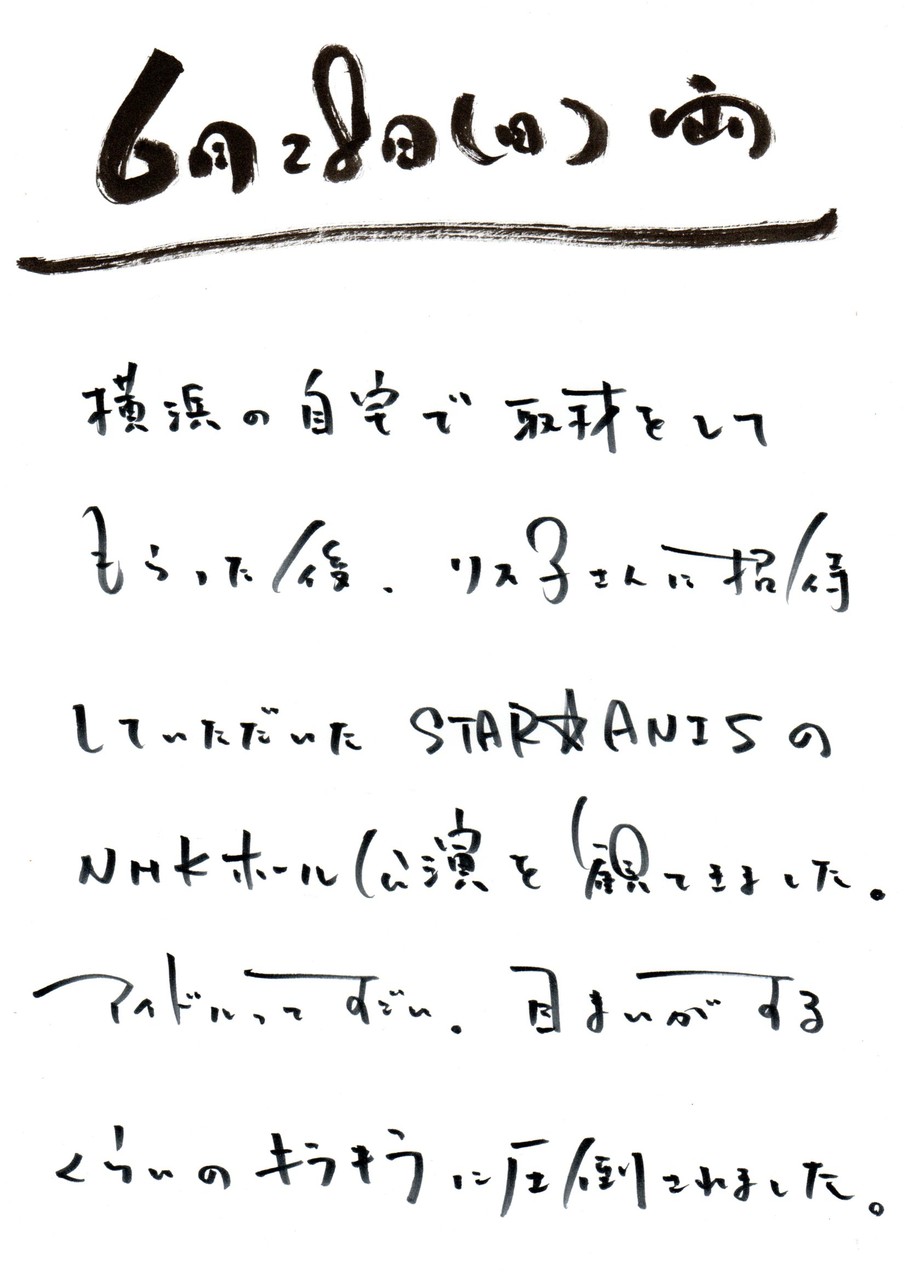 6月28日(日) 雨
横浜の自宅で取材をして
もらった後、リス子さんに招待
していただいたSTAR☆ANISの
NHKホール公演を観てきました。
アイドルってすごい。目まいがする
くらいのキラキラに圧倒されました。